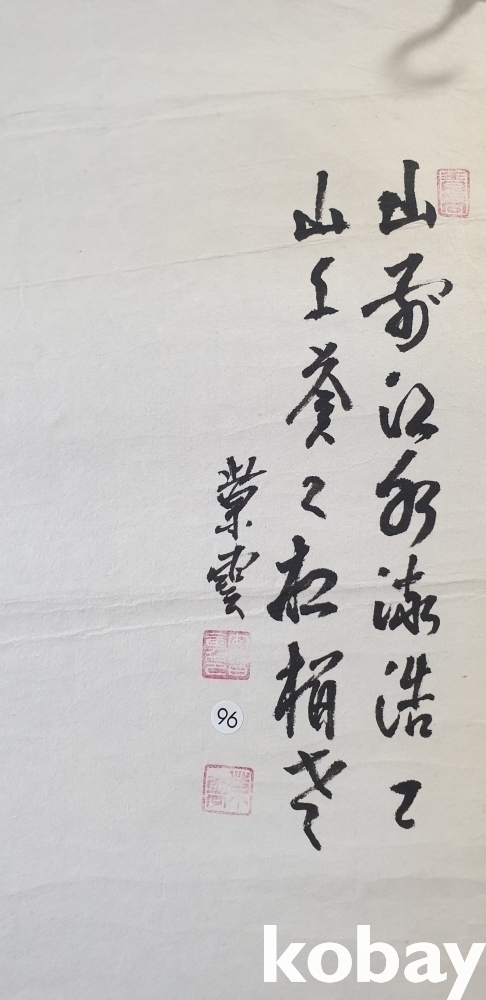 山前江水流浩〻
山上蒼〻松柏老
雲
96
kobay